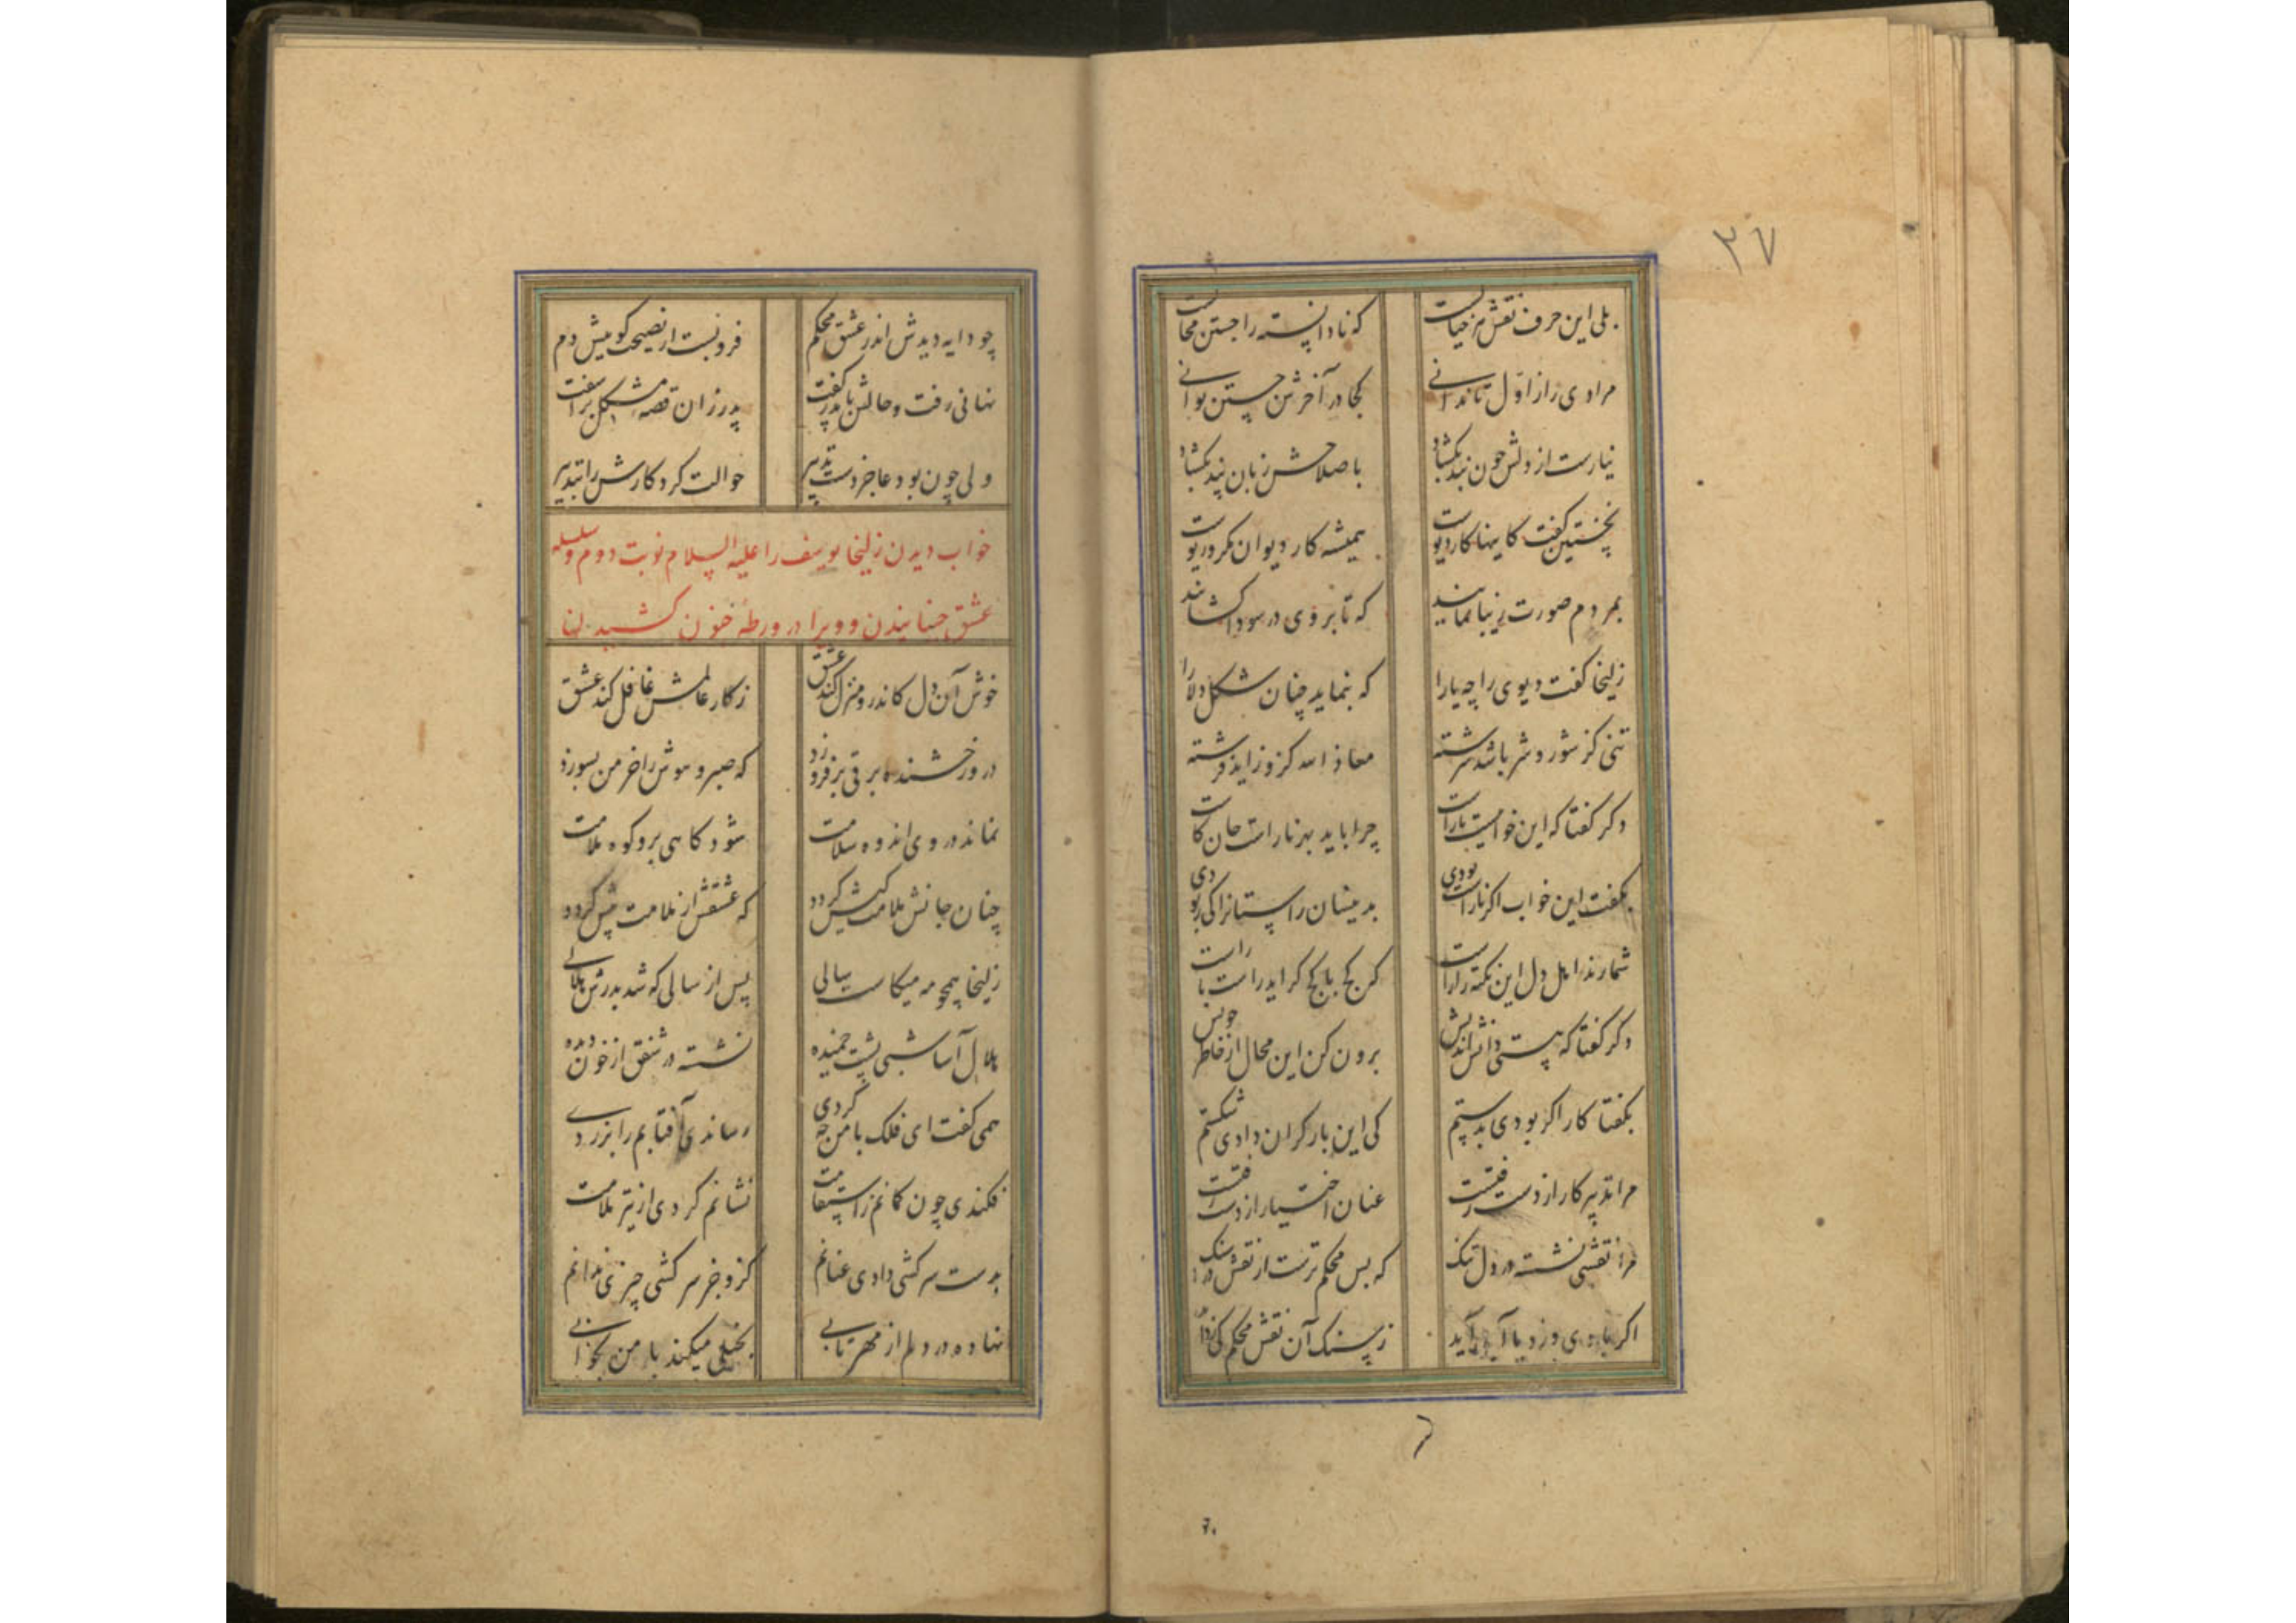 ۲۷
بلی این حرف نقش هر خیالست که نادانسته را جستن محالست
مرادی را ز اول تا ندانی کجا در آخرش جستن توانی
نیارست از دلش چون بند بگشاد باصلاحش زبان پند بگشاد
نخستین گفت کاینها کار دیوست همیشه کار دیوان مکر و ریوست
بمردم صورت زیبا نمایند که تا بر وی در سودا گشایند
زلیخا گفت دیوی را چه یارا که بنماید چنان شکل دلارا
تنی کز شور و شر باشد سرشته معاذ الله کزو زاید فرشته
دگر گفتا که این خوابیست ناراست چرا باید بهر ناراست جان کاست
بگفت این خواب اگر ناراست بودی بدینسان راستانرا کی ربودی
شمارند اهل دل این نکته را راست که کج با کج گراید راست با راست
دگر گفتا که هستی دانش اندیش برون کن این محال از خاطر خویش
بگفتا کار اگر بودی بدستم کی این بار گران دادی شکستم
مرا تدبیر کار از دست رفتست عنان اختیار از دست رفتست
مرا نقشی نشسته در دل تنگ که بس محکم ترست از نقش در سنگ
اگر بادی وزد یا آبی آید ز سنگ آن نقش محکم کی زداید
چو دایه دیدش اندر عشق محکم فرو بست از نصیحت گوییش دم
نهانی رفت و حالش با پدر گفت پدر زان قصه مشکل برآشفت
ولی چون بود عاجز دست تدبیر حوالت کرد کارش را بتدبیر
خواب دیدن زلیخا یوسف را علیه السلام نوبت دوم و سلسله
عشق جنبانیدن و ویرا در ورطه خون کشیدن
خوش آن دل کاندرو منزل کند عشق ز کار عالمش غافل کند عشق
درو رخشنده برقی برفروزد که صبر و هوش را خرمن بسوزد
نماند در وی اندوه سلامت شود کاهی برو کوه ملامت
چنان جانش ملامت کیش گردد که عشقش از ملامت بیش گردد
زلیخا همچو مه میکاست سالی پس از سالی که شد بدرش هلالی
هلال آسا شبی پشت خمیده نشسته در شفق از خون دیده
همی گفت ای فلک با من چه کردی رساندی آفتابم را بزردی
فکندی چون کمانم ز استقامت نشانم کردی از تیر ملامت
بدست سرکشی دادی عنانم کزو جز سرکشی چیزی ندانم
نهاده در دلم از مهر تابی بخیلی میکند با من بخوابی